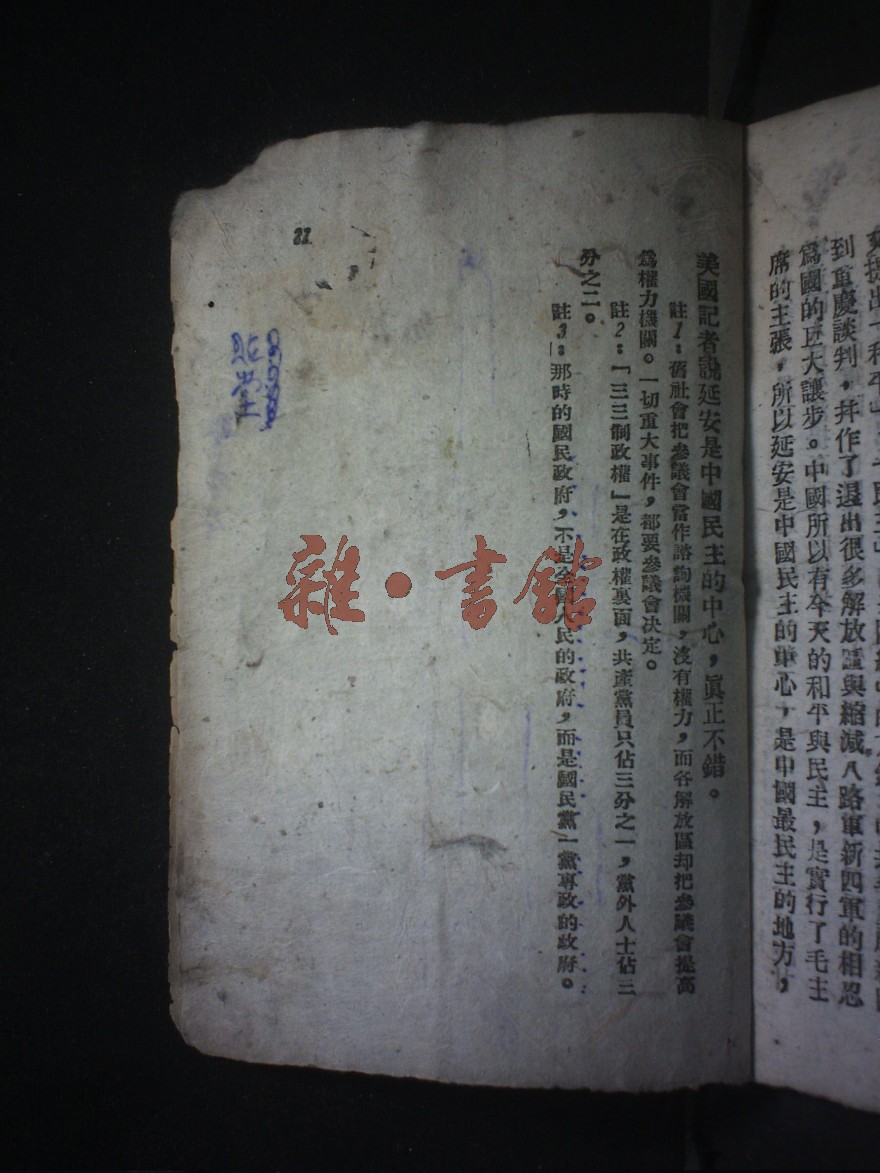 到重慶談判，并作了退出很多解放區與縮减八路軍新四軍的相忍
爲國的巨大讓步。中國所以有今天的和平與民主，是實行了毛主
席的主張，所以延安是中國民主的重心，是中國最民主的地方，
美國記者說延安是中國民主的中心，眞正不錯。
註1：舊社會把參議會當作諮詢機關，沒有權力，而各解放區却把參議會提高
爲權力機關。一切重大事件，都要參議會決定。
註2：「三三制政權」是在政權裏面，共產黨員只佔三分之一，黨外人士佔三
分之二。
註3：那時的國民政府，不是全國人民的政府，而是國民黨一黨專政的政府。
22
雜·書館